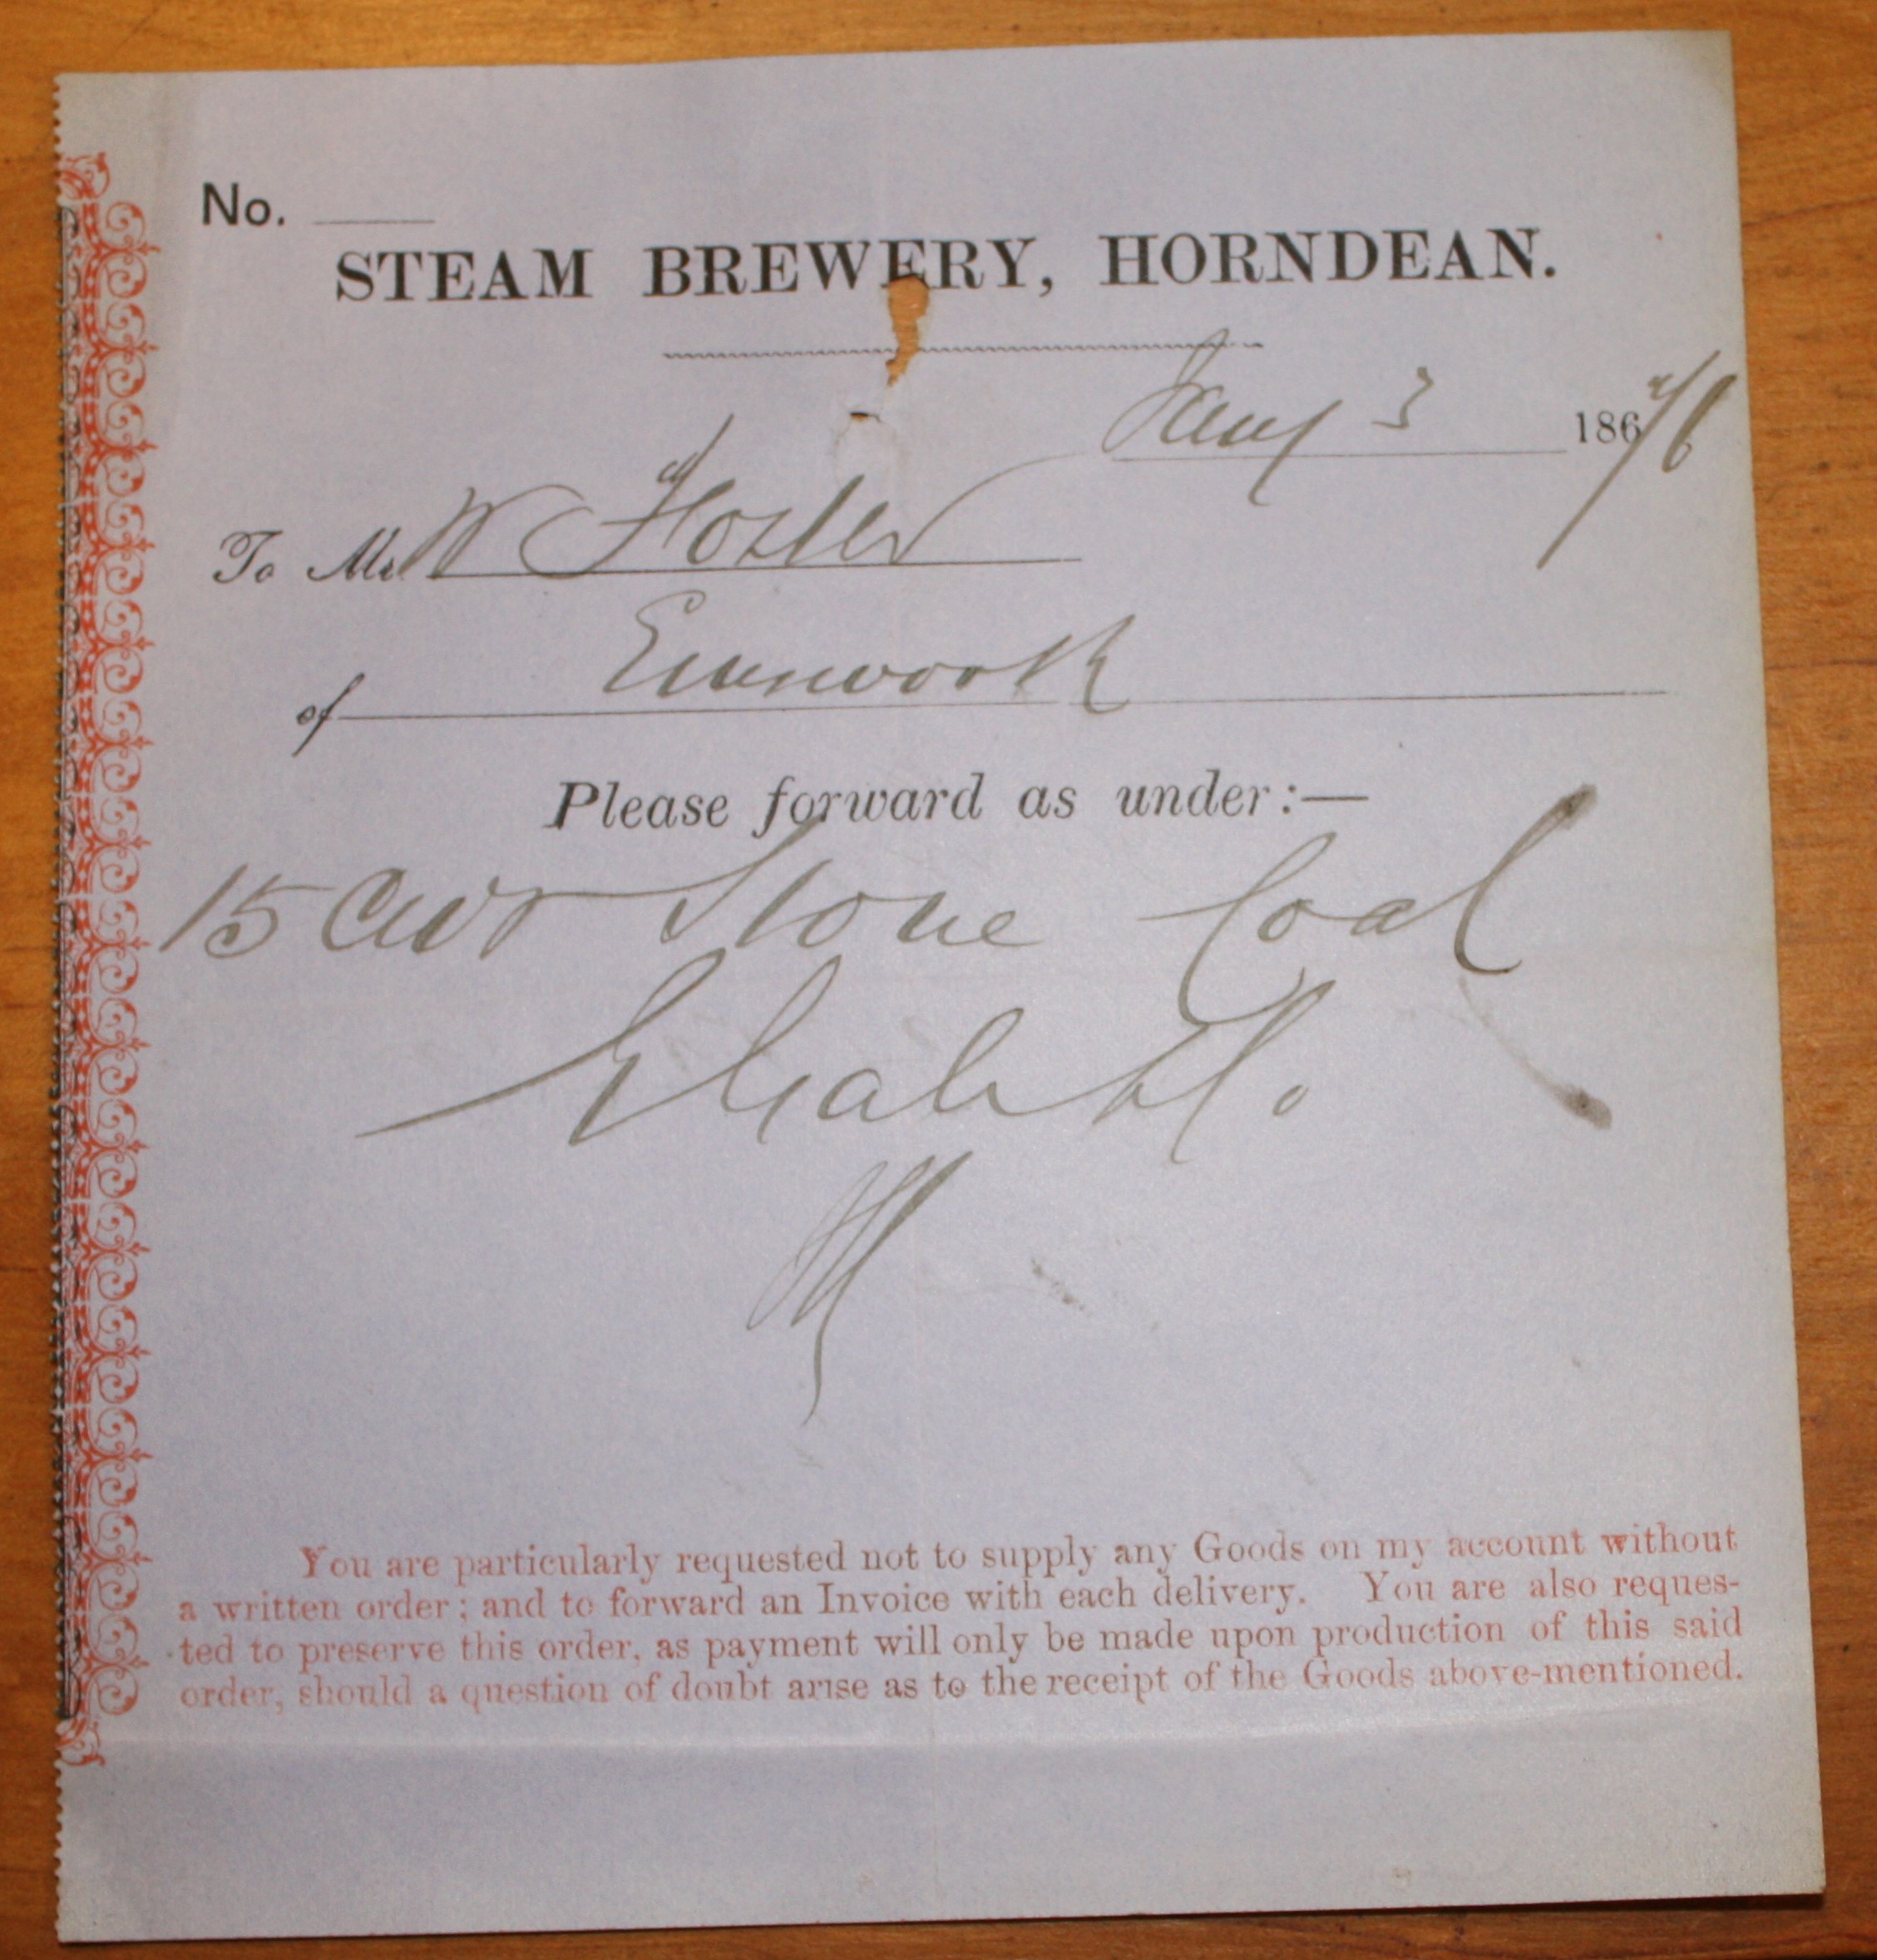 No.
STEAM BREWERY, HORNDEAN.
Jany 3 1867/6
To Mr W Foster
of Emsworth
Please forward as under:—
15 Cwt Stone Coal
You are particularly requested not to supply any Goods on my account without
a written order; and to forward an Invoice with each delivery. You are also reques-
ted to preserve this order, as payment will only be made upon production of this said
order, should a question of doubt arise as to the receipt of the Goods above-mentioned.